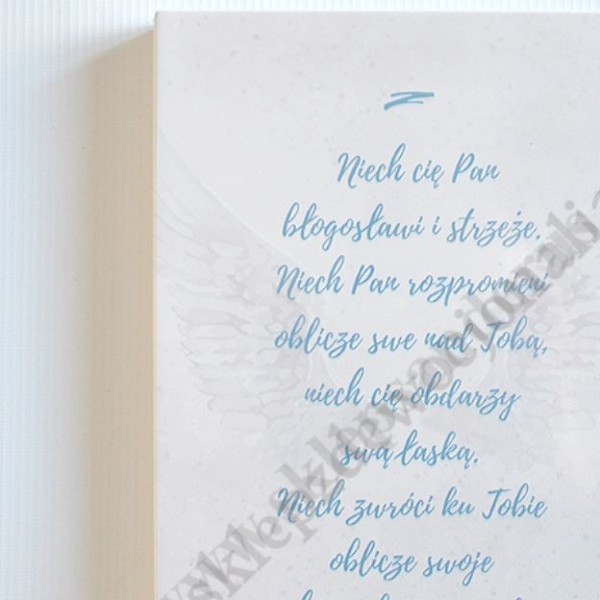 Niech cię Pan
błogosławi i strzeże.
Niech Pan rozpromieni
oblicze swe nad Tobą,
niech cię obdarzy
swą łaską.
Niech zwróci ku Tobie
oblicze swoje